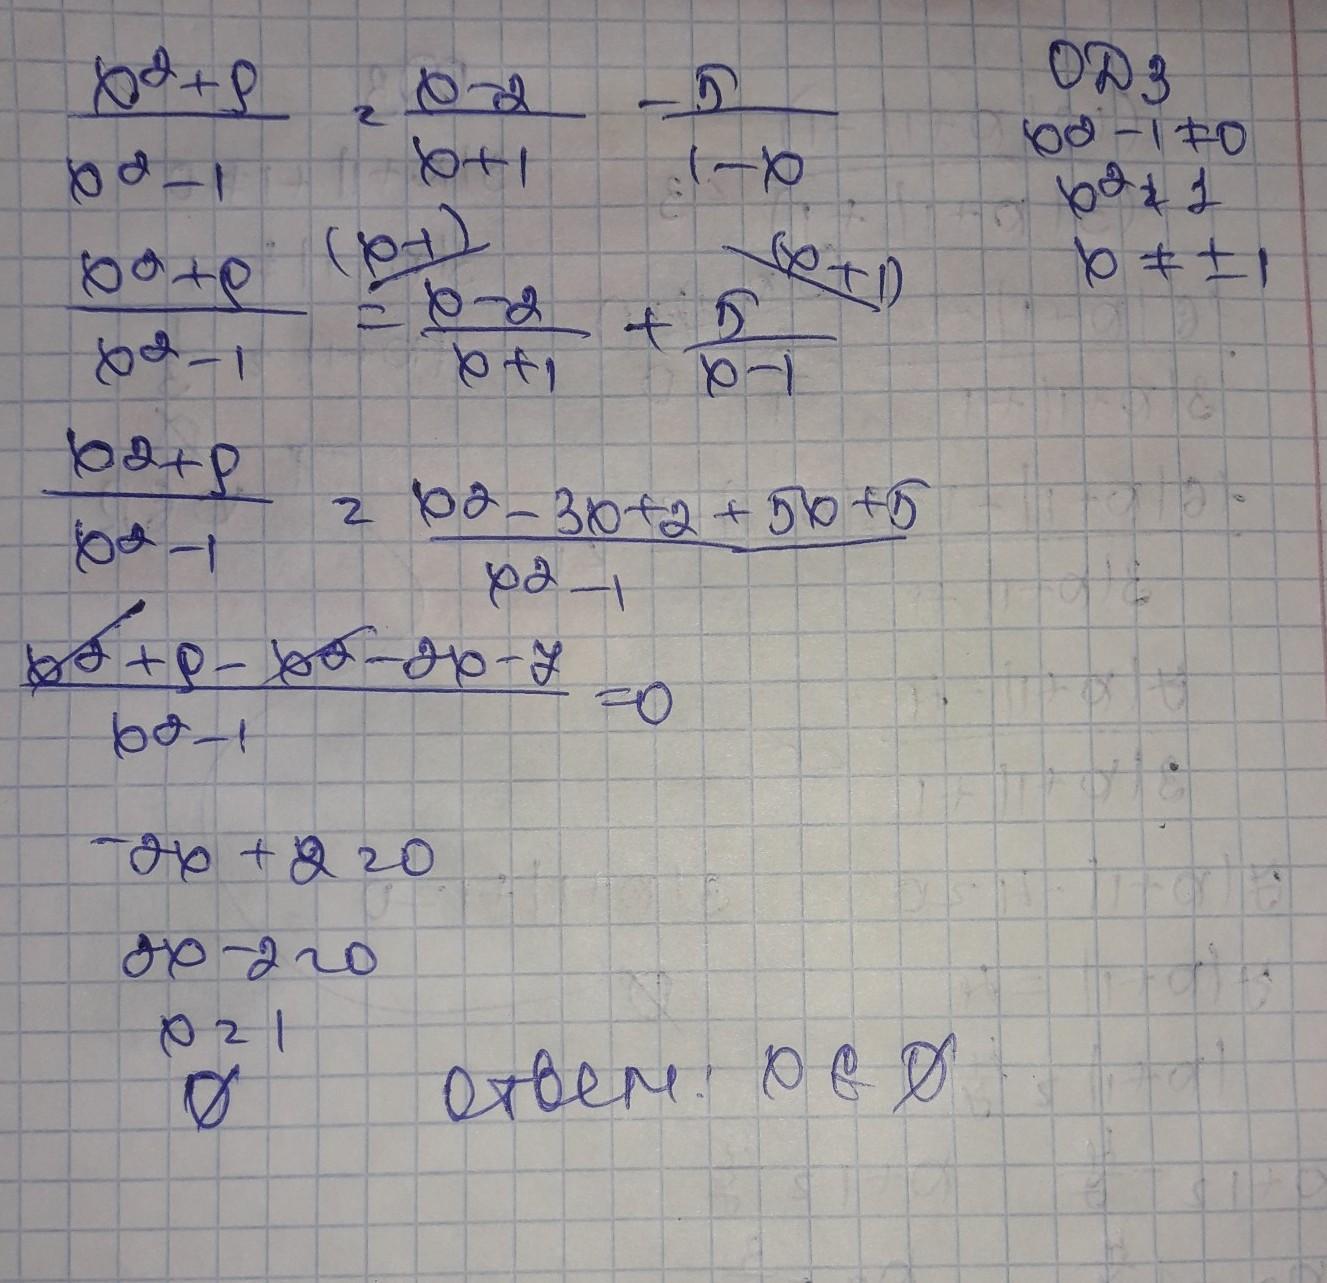 \frac{x^2+9}{x^2-1} = \frac{x-2}{x+1} - \frac{5}{1-x}
ОДЗ
x^2-1≠0
x^2≠1
x≠±1
\frac{x^2+9}{x^2-1} = \frac{x-2}{x+1} (x-1) + \frac{5}{x-1} (x+1)
\frac{x^2+9}{x^2-1} = \frac{x^2-3x+2+5x+5}{x^2-1}
\frac{x^2+9-x^2-2x-7}{x^2-1} =0
-2x+2=0
2x-2=0
x=1
∅
Ответ: x∈∅